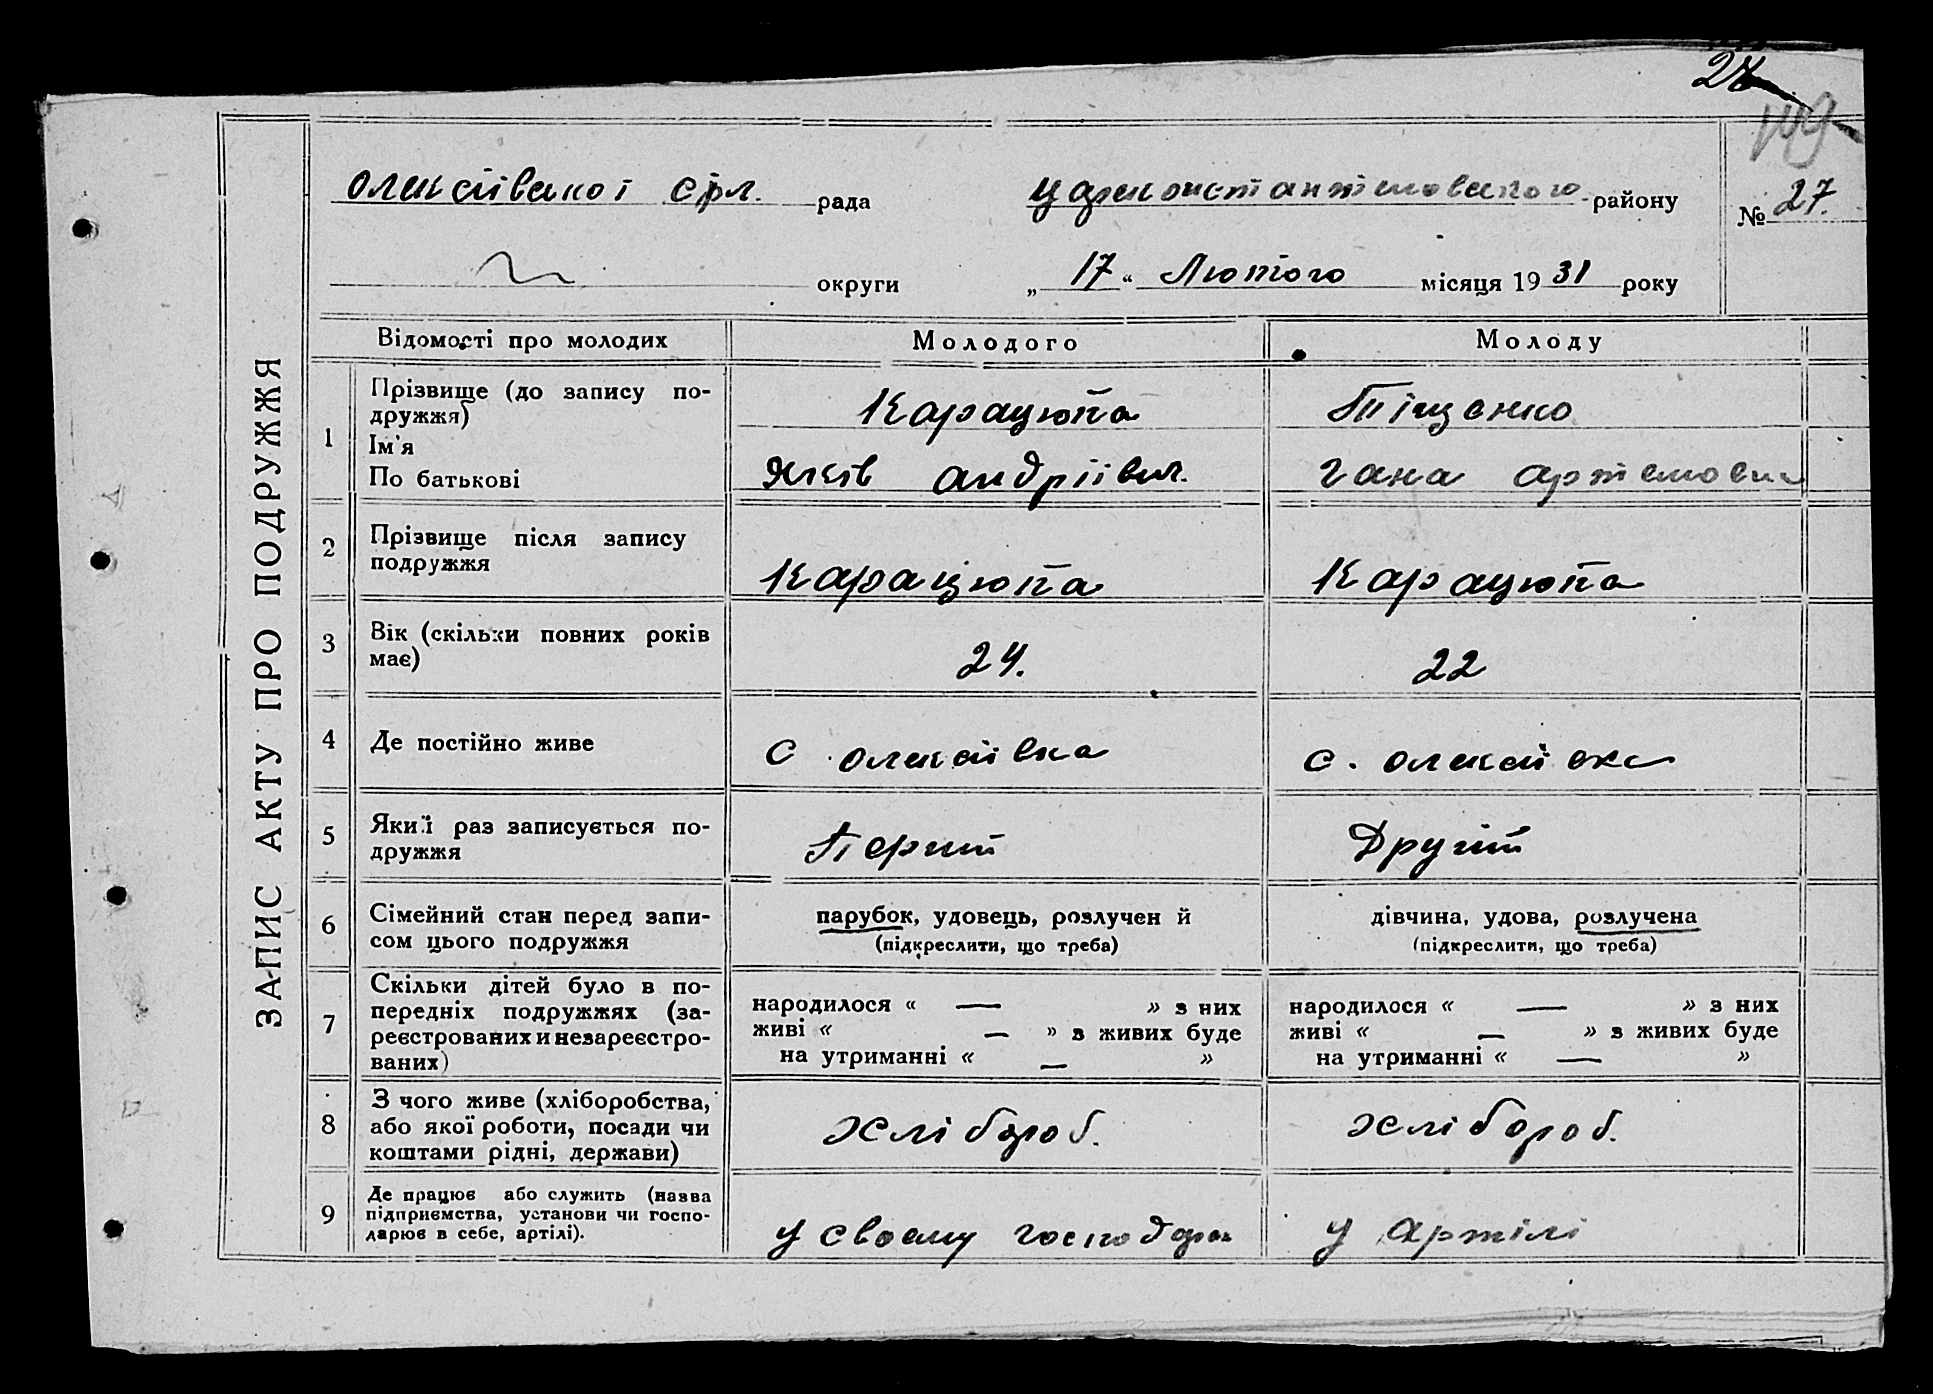 27
ЗАПИС АКТУ ПРО ПОДРУЖЖЯ
Олексіівської сіл. рада Цареконстантиновського району № 27.
округи „ 17 “ Лютого місяця 1931 року
Відомості про молодих Молодого Молоду
1 Прізвище (до запису по-
дружжя) Карацюпа Тіщенко
Ім'я
По батькові Яків Андріівич. Гана Артемовна
2 Прізвище після запису
подружжя Карацюпа Карацюпа
3 Вік (скільки повних років
має) 24. 22
4 Де постійно живе с Олексіівка с. Олексіівка
5 Який раз записується по-
дружжя Перший Другий
6 Сімейний стан перед запи-
сом цього подружжя
парубок, удовець, розлучен й дівчина, удова, розлучена
(підкреслити, що треба) (підкреслити, що треба)
7 Скільки дітей було в по-
передніх подружжях (за-
реєстрованих и незареєстро-
ваних)
народилося « — » з них народилося « — » з них
живі « — » з живих буде живі « — » з живих буде
на утриманні « — » на утриманні « — »
8 З чого живе (хліборобства,
або якої роботи, посади чи
коштами рідні, держави) Хлібороб. Хлібороб.
9 Де працює або служить (назва
підприємства, установи чи госпо-
дарює в себе, артілі). у своему господар у артілі